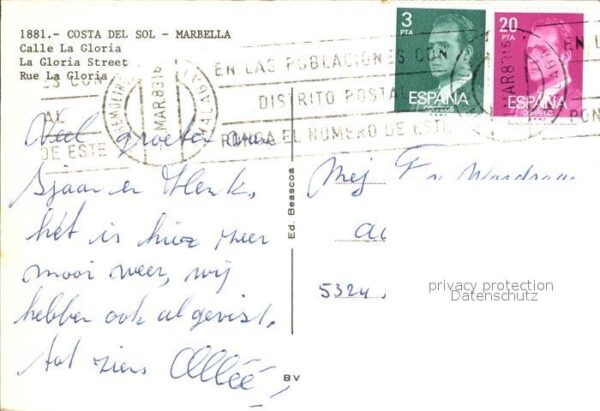 1881.- COSTA DEL SOL - MARBELLA
Calle La Gloria
La Gloria Street
Rue La Gloria
3
PTA
ESPAÑA
CORREOS
20
PTA
ESPAÑA
CORREOS
EN LAS POBLACIONES CON
DISTRITO POSTAL
PONGA EL NUMERO DE ESTE
ES CON
AL
DE ESTE
MAR 83 16
MALAGA
EN L
PON
Veel groeten van
Sjaan en Henk,
het is hier zeer
mooi weer, wij
hebben ook al gevist.
tot ziens
Ed. Beascoa
BV
Mej
5324
privacy protection
Datenschutz